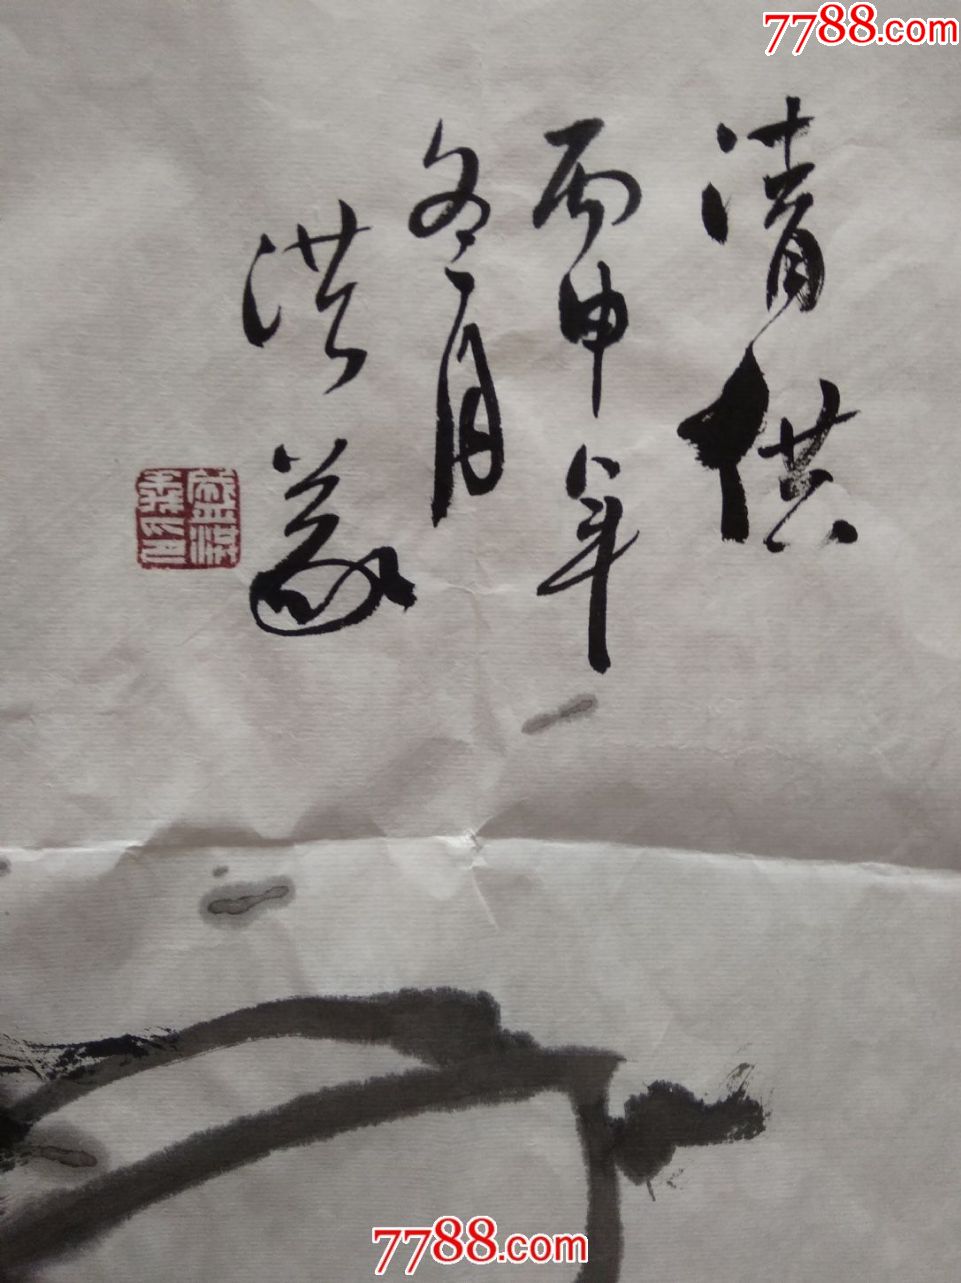 7788.com
清供
丙申年
冬月
洪义
7788.com